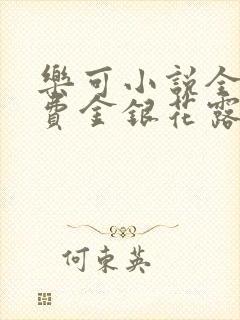 樂可小說全
費金銀花露
何東英